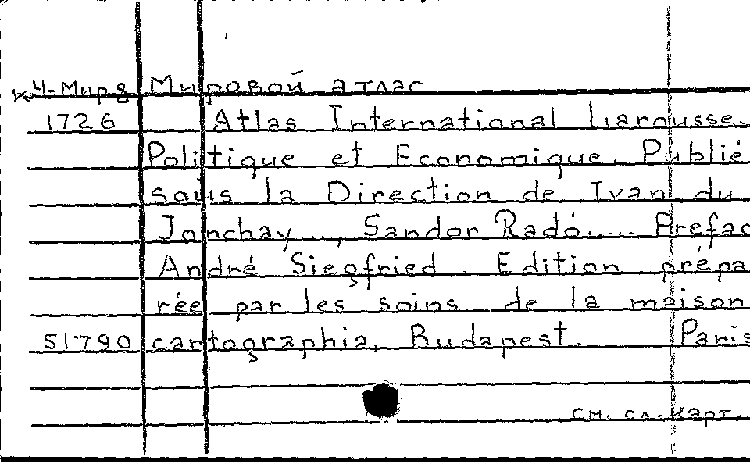 4-Мир8 Мировой атлас
1726 Atlas International Larousse.
Politique et Economique. Publié
sous la Direction de Ivan du
Jonchay, Sandor Radó. Prefac
André Siegfried. Edition prépa
rée par les soins de la maison
51790 cartographia, Budapest. Paris
см. сл. карт.